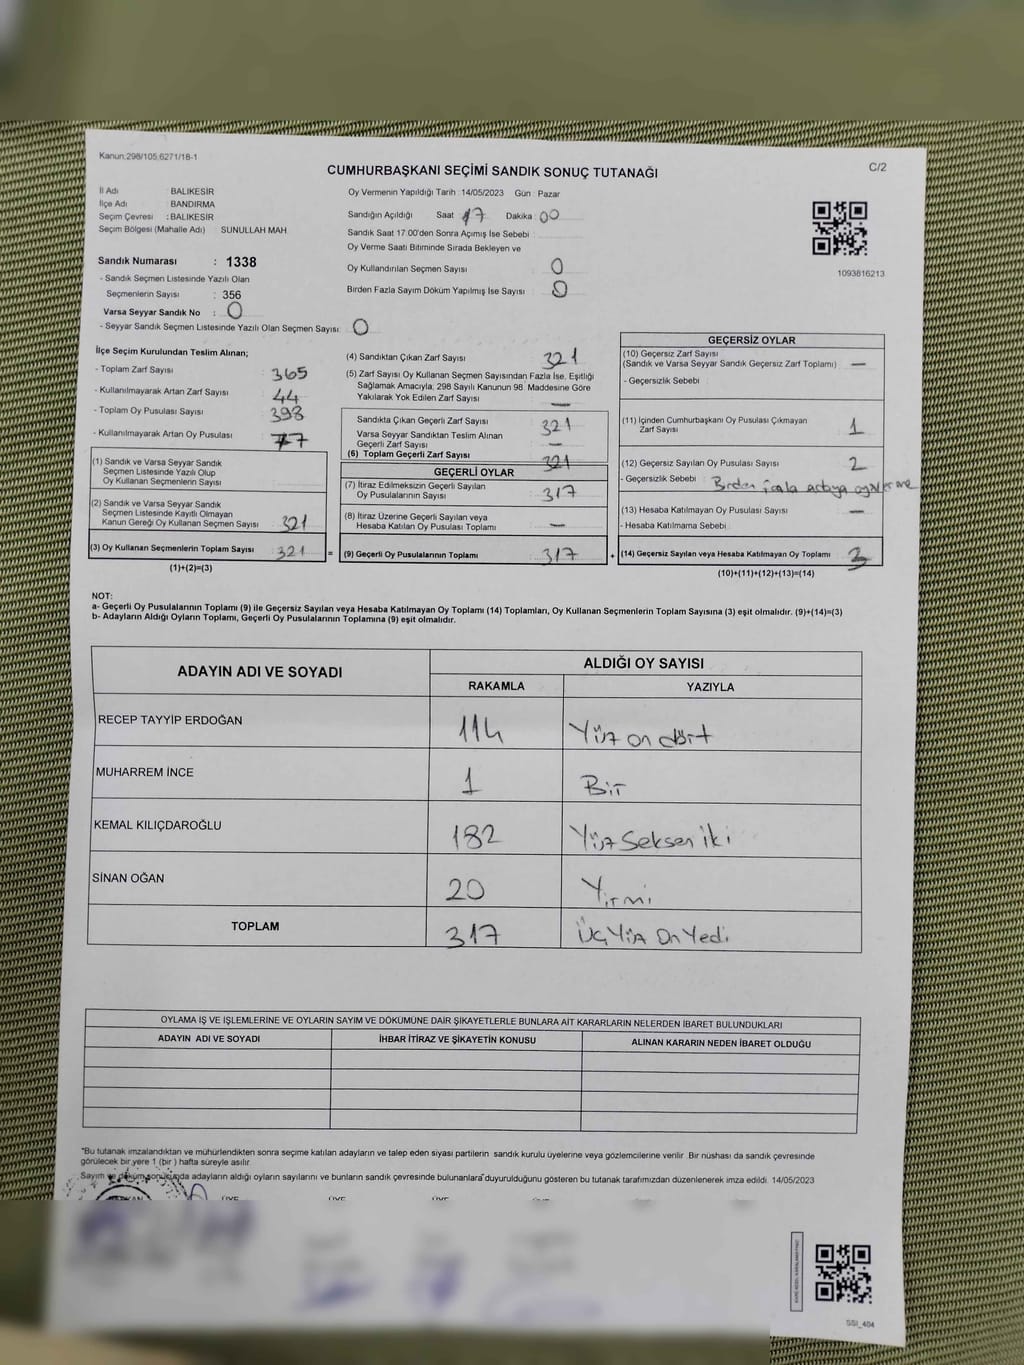 Kanun:298/105,6271/18-1
C/2
CUMHURBAŞKANI SEÇİMİ SANDIK SONUÇ TUTANAĞI
İl Adı : BALIKESİR
İlçe Adı : BANDIRMA
Seçim Çevresi : BALIKESİR
Seçim Bölgesi (Mahalle Adı) SUNULLAH MAH.
Oy Vermenin Yapıldığı Tarih :14/05/2023 Gün : Pazar
Sandığın Açıldığı Saat 17 Dakika 00
Sandık Saat 17:00'den Sonra Açımış İse Sebebi :
Oy Verme Saati Bitiminde Sırada Bekleyen ve
Oy Kullandırılan Seçmen Sayısı 0
Birden Fazla Sayım Döküm Yapılmış İse Sayısı 0
1093816213
Sandık Numarası : 1338
- Sandık Seçmen Listesinde Yazılı Olan
Seçmenlerin Sayısı : 356
Varsa Seyyar Sandık No : 0
- Seyyar Sandık Seçmen Listesinde Yazılı Olan Seçmen Sayısı: 0
İlçe Seçim Kurulundan Teslim Alınan;
- Toplam Zarf Sayısı : 365
- Kullanılmayarak Artan Zarf Sayısı : 44
- Toplam Oy Pusulası Sayısı : 398
- Kullanılmayarak Artan Oy Pusulası : 77
(1) Sandık ve Varsa Seyyar Sandık
Seçmen Listesinde Yazılı Olup
Oy Kullanan Seçmenlerin Sayısı :
(2) Sandık ve Varsa Seyyar Sandık
Seçmen Listesinde Kayıtlı Olmayan
Kanun Gereği Oy Kullanan Seçmen Sayısı : 321
(3) Oy Kullanan Seçmenlerin Toplam Sayısı : 321 =
(1)+(2)=(3)
(4) Sandıktan Çıkan Zarf Sayısı 321
(5) Zarf Sayısı Oy Kullanan Seçmen Sayısından Fazla İse, Eşitliği
Sağlamak Amacıyla; 298 Sayılı Kanunun 98. Maddesine Göre
Yakılarak Yok Edilen Zarf Sayısı : —
Sandıkta Çıkan Geçerli Zarf Sayısı 321
Varsa Seyyar Sandıktan Teslim Alınan
Geçerli Zarf Sayısı —
(6) Toplam Geçerli Zarf Sayısı 321
GEÇERLİ OYLAR
(7) İtiraz Edilmeksizin Geçerli Sayılan
Oy Pusulalarının Sayısı 317
(8) İtiraz Üzerine Geçerli Sayılan veya
Hesaba Katılan Oy Pusulası Toplamı —
(9) Geçerli Oy Pusulalarının Toplamı 317 +
GEÇERSİZ OYLAR
(10) Geçersiz Zarf Sayısı
(Sandık ve Varsa Seyyar Sandık Geçersiz Zarf Toplamı) —
- Geçersizlik Sebebi :
(11) İçinden Cumhurbaşkanı Oy Pusulası Çıkmayan
Zarf Sayısı 1
(12) Geçersiz Sayılan Oy Pusulası Sayısı 2
- Geçersizlik Sebebi : Birden fazla adaya
(13) Hesaba Katılmayan Oy Pusulası Sayısı —
- Hesaba Katılmama Sebebi :
(14) Geçersiz Sayılan veya Hesaba Katılmayan Oy Toplamı 3
(10)+(11)+(12)+(13)=(14)
NOT:
a- Geçerli Oy Pusulalarının Toplamı (9) ile Geçersiz Sayılan veya Hesaba Katılmayan Oy Toplamı (14) Toplamları, Oy Kullanan Seçmenlerin Toplam Sayısına (3) eşit olmalıdır. (9)+(14)=(3)
b- Adayların Aldığı Oyların Toplamı, Geçerli Oy Pusulalarının Toplamına (9) eşit olmalıdır.
ADAYIN ADI VE SOYADI ALDIĞI OY SAYISI
RAKAMLA YAZIYLA
RECEP TAYYİP ERDOĞAN 114 Yüz on dört
MUHARREM İNCE 1 Bir
KEMAL KILIÇDAROĞLU 182 Yüz Seksen iki
SİNAN OĞAN 20 Yirmi
TOPLAM 317 Üç Yüz On Yedi
OYLAMA İŞ VE İŞLEMLERİNE VE OYLARIN SAYIM VE DÖKÜMÜNE DAİR ŞİKAYETLERLE BUNLARA AİT KARARLARIN NELERDEN İBARET BULUNDUKLARI
ADAYIN ADI VE SOYADI İHBAR İTİRAZ VE ŞİKAYETİN KONUSU ALINAN KARARIN NEDEN İBARET OLDUĞU
"Bu tutanak imzalandıktan ve mühürlendikten sonra seçime katılan adayların ve talep eden siyasi partilerin sandık kurulu üyelerine veya gözlemcilerine verilir. Bir nüshası da sandık çevresinde
görülecek bir yere 1 (bir ) hafta süreyle asılır.
Sayım ve döküm sonucunda adayların aldığı oyların sayılarını ve bunların sandık çevresinde bulunanlara duyurulduğunu gösteren bu tutanak tarafımızdan düzenlenerek imza edildi. 14/05/2023
BAŞKAN ÜYE ÜYE ÜYE
SSI_404